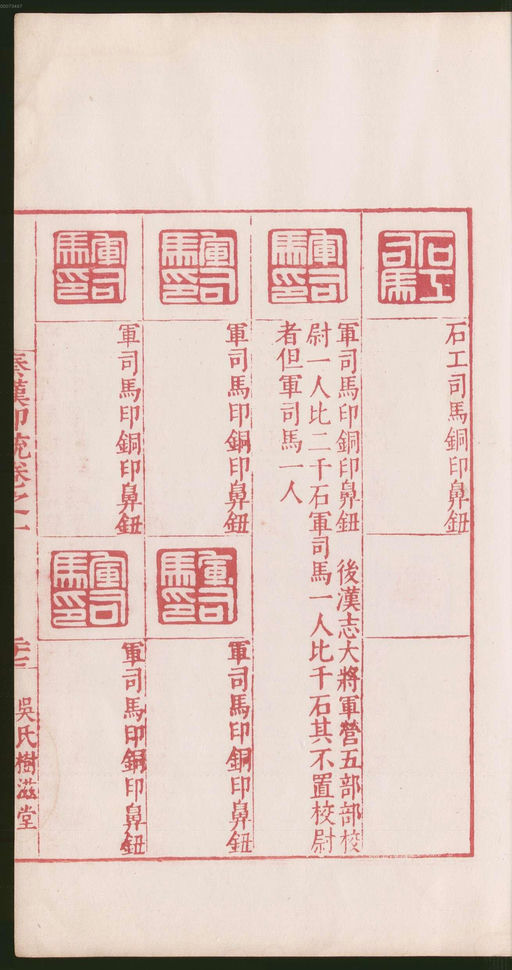 00073447
石工司馬
石工司馬銅印鼻鈕
軍司馬印
軍司馬印銅印鼻鈕 後漢志大將軍營五部部校
尉一人比二千石軍司馬一人比千石其不置校尉
者但軍司馬一人
軍司馬印
軍司馬印銅印鼻鈕
軍司馬印
軍司馬印銅印鼻鈕
軍司馬印
軍司馬印銅印鼻鈕
軍司馬印
軍司馬印銅印鼻鈕
秦漢印統卷之一
吳氏樹滋堂